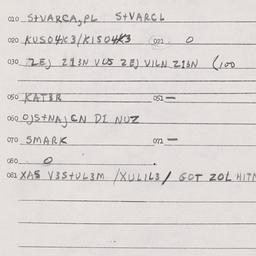 010 S+VARCA,PL S+VARCL
020 KUSO4K3/KISO4K3 021 0
030 ZEJ Z13N VUS ZEJ VILN Z13N (100
050 KAT3R 051 —
060 OJS+NAJ CN DI NUZ
070 SMARK 071 —
080 0
081 XAS V3S+UL3M /XULIL3/ GOT ZOL HITN